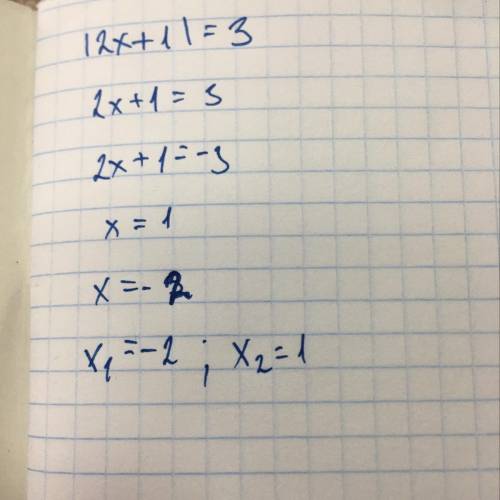 |2x+1| = 3
2x+1 = 3
2x+1 = -3
x = 1
x = -2
x₁ = -2 ; x₂ = 1